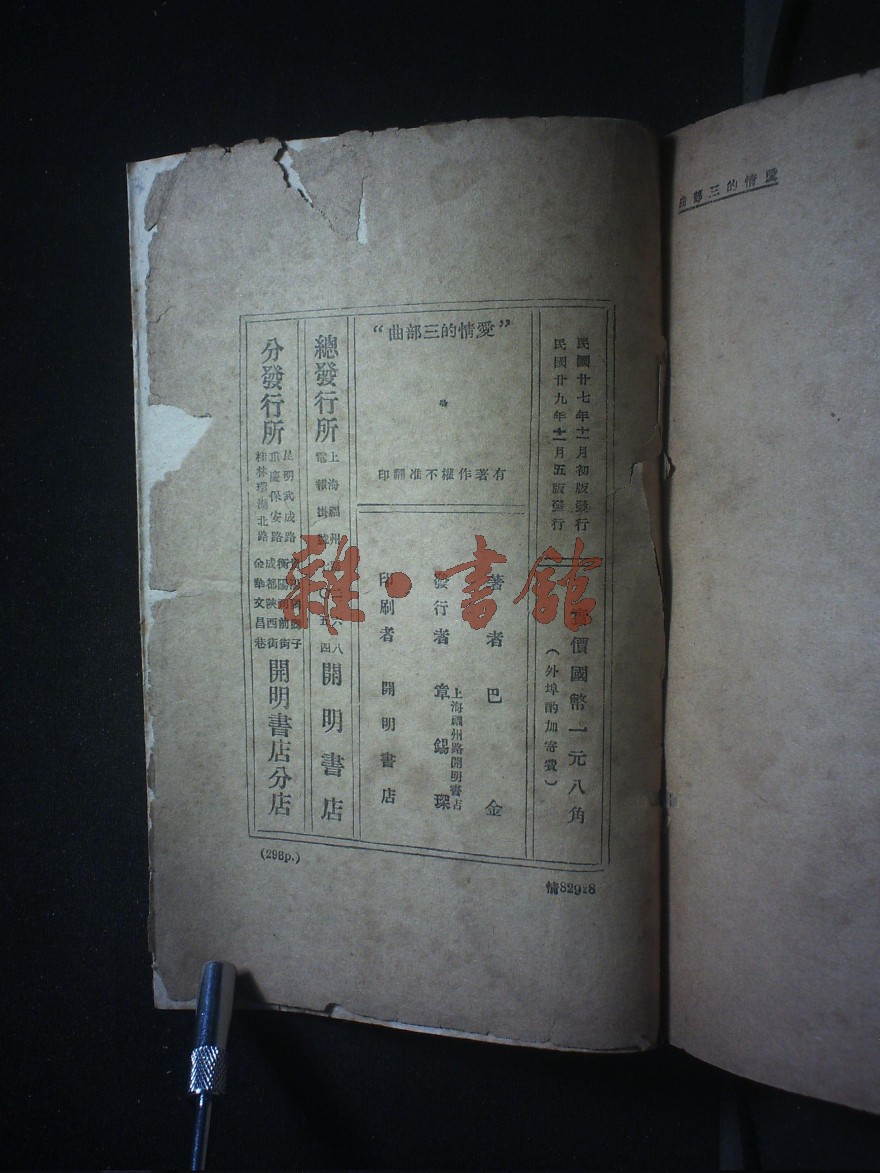 愛情的三部曲
民國廿七年十一月初版發行
民國廿九年十一月五版發行
價國幣一元八角
(外埠酌加寄費)
”愛情的三部曲“
有著作權不准翻印
著者 巴金
發行者 章錫琛
上海福州路開明書店
印刷者 開明書店
總發行所
上海福州
電報掛號
開明書店
分發行所
昆明武成路
重慶保安路
桂林環湖北路
成都陝西街
金華文昌巷
開明書店分店
(298p.)
情82928
雜·書館